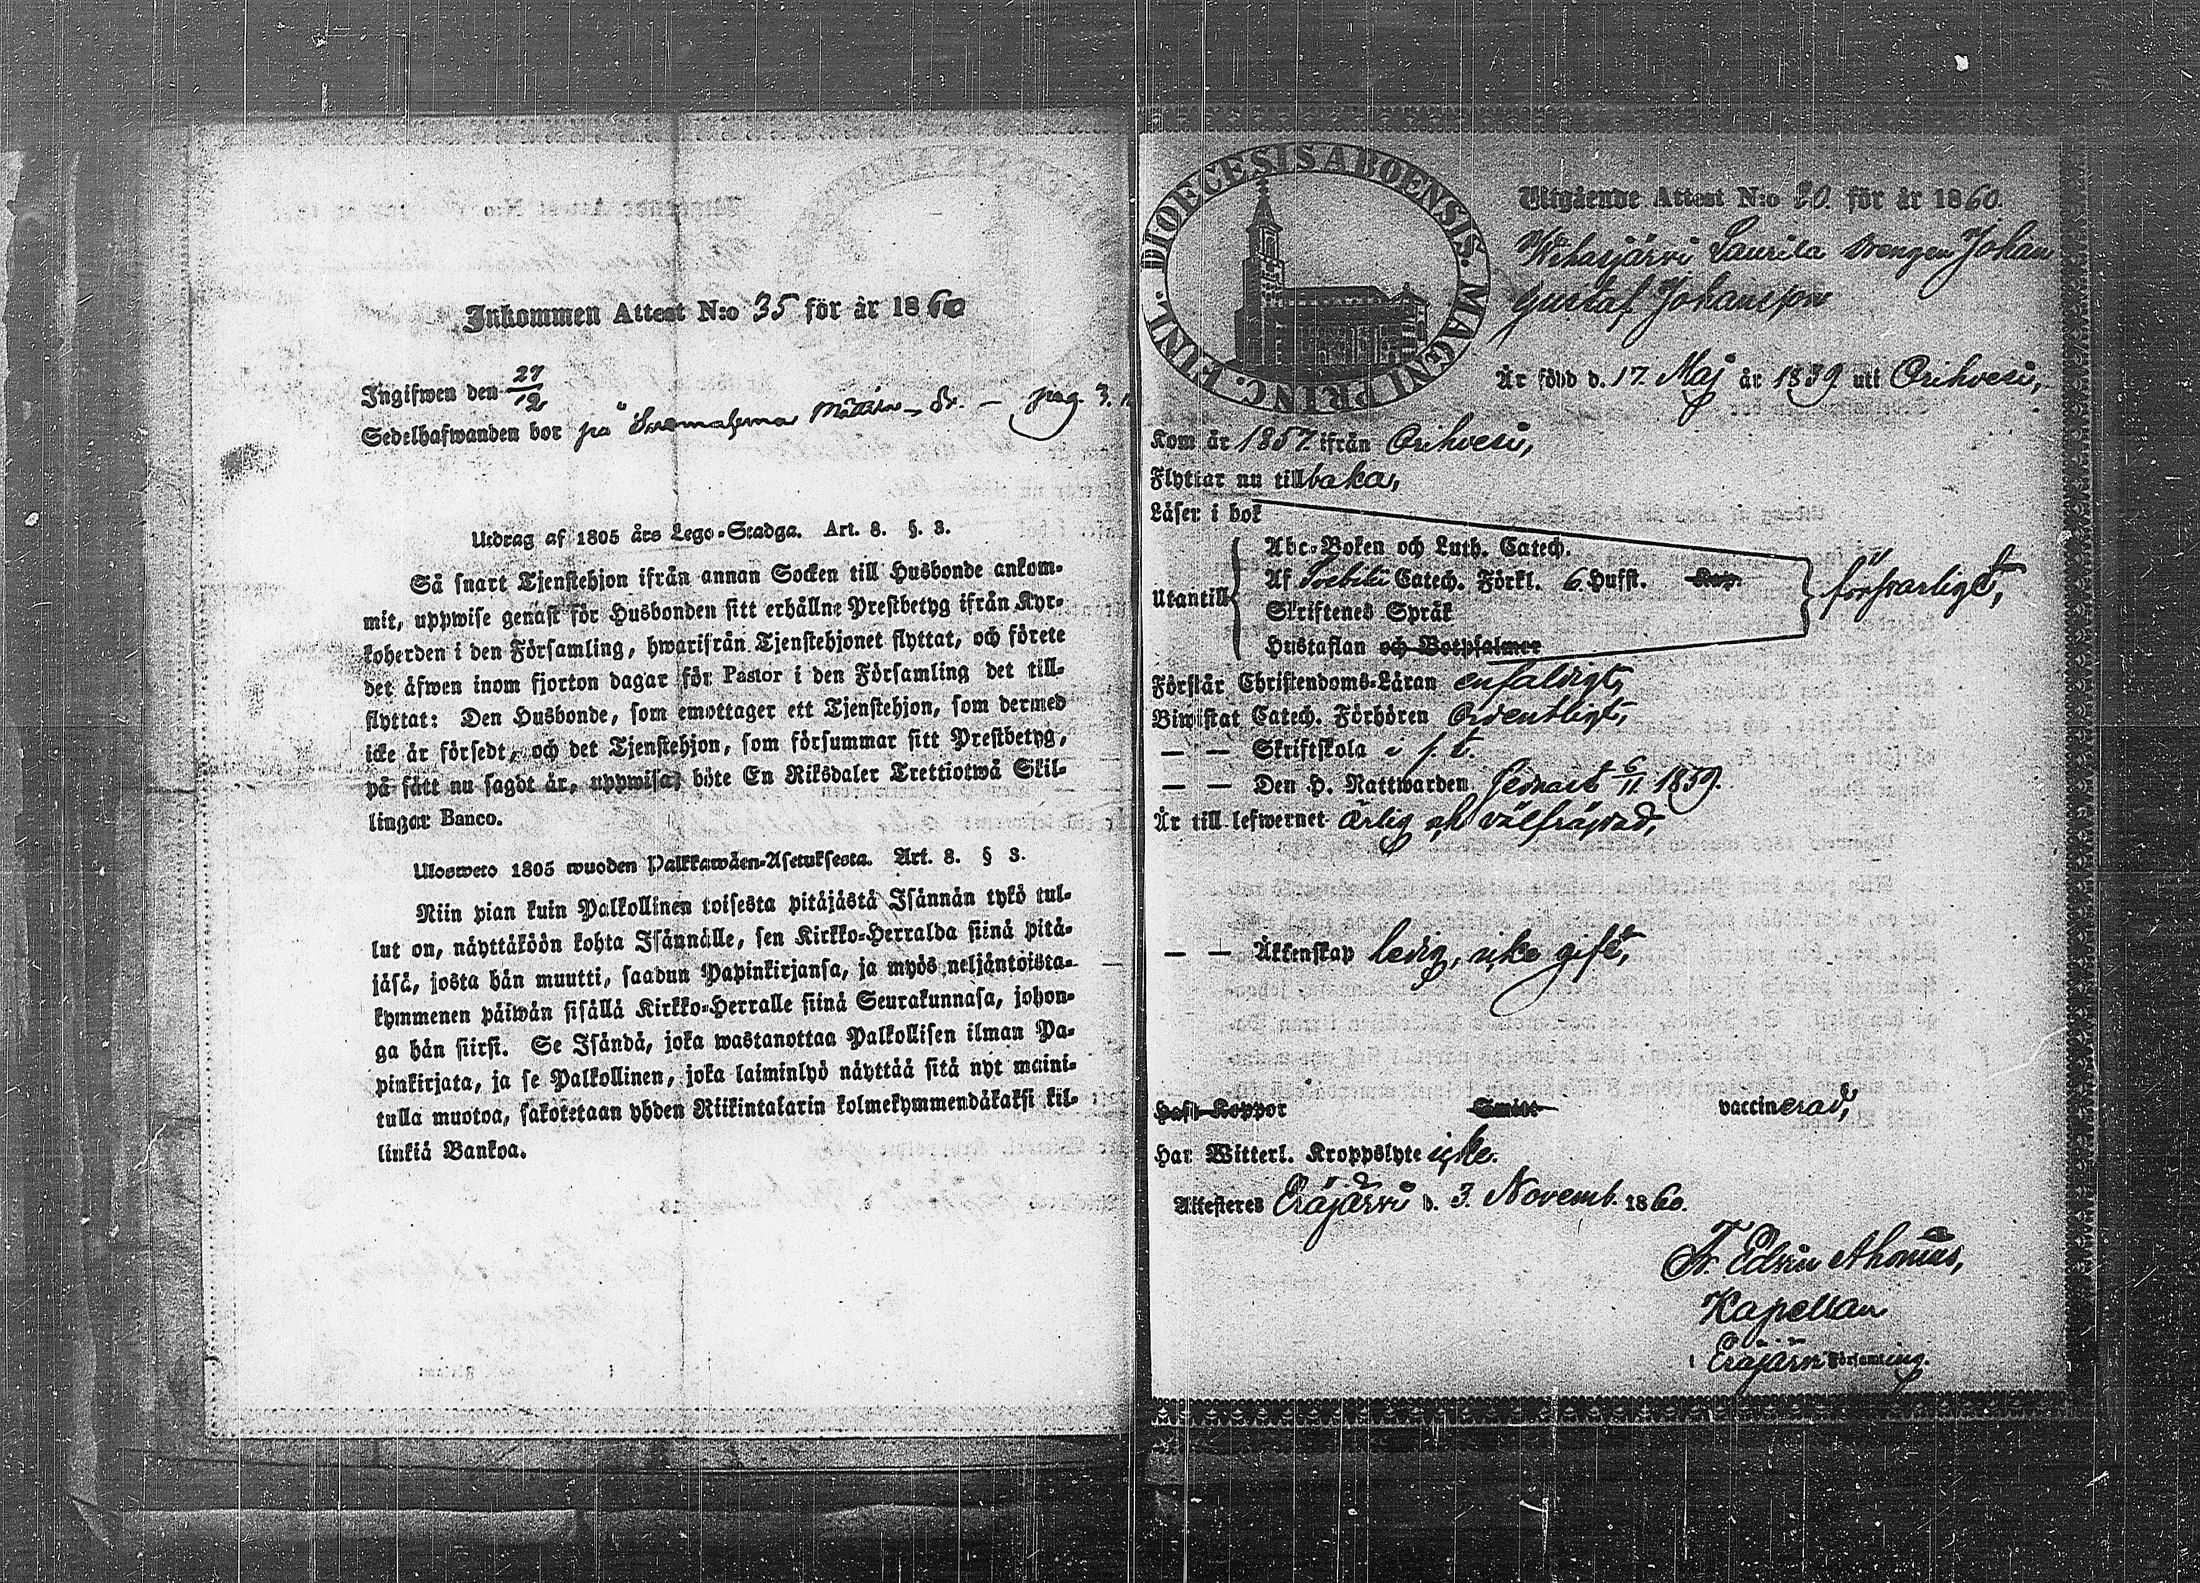 Inkommen Attest N:o 35 för år 1860
Ingifwen den 27/12
Sedelhafwanden bor på Mattila dr. pag. 3.
Utdrag af 1805 års Lego-Stadga. Art. 8. §. 3.
Så snart Tjenstehjon ifrån annan Socken till Husbonde ankom-
mit, uppwise genast för Husbonden sitt erhållne Prestbetyg ifrån Kyr-
koherden i den Församling, hwarifrån Tjenstehjonet flyttat, och förete
det äfwen inom fjorton dagar för Pastor i den Församling det till-
flyttat: Den Husbonde, som emottager ett Tjenstehjon, som dermed
icke är försedt, och det Tjenstehjon, som försummar sitt Prestbetyg,
på sätt nu sagdt är, uppwisa, böte En Riksdaler Trettiotwå Skil-
lingar Banco.
Ulosweto 1805 wuoden Palkkawäen-Asetuksesta. Art. 8. § 3.
Niin pian kuin Palkollinen toisesta pitäjästä Isännän tykö tul-
lut on, näyttäköön kohta Isännälle, sen Kirkko-Herralda siinä pitä-
jäsä, josta hän muutti, saadun Papinkirjansa, ja myös neljäntoista-
kymmenen päiwän sisällä Kirkko-Herralle siinä Seurakunnasa, johon-
ga hän siirsi. Se Isändä, joka wastanottaa Palkollisen ilman Pa-
pinkirjata, ja se Palkollinen, joka laiminlyö näyttää sitä nyt maini-
tulla muotoa, sakotetaan yhden Riikintalarin kolmekymmendäkaksi kil-
linkiä Bankoa.
DIOECESIS ABOENSIS. MAGNI PRINC. FINL.
Utgående Attest N:o 30. för år 1860.
Wihasjärvi Laurila drengen Johan
Gustaf Johansson
Är född d. 17. Maj år 1839 uti Orihvesi,
Kom år 1857 ifrån Orihvesi,
Flyttar nu tillbaka,
Läser i bok
Utantill
Abc-Boken och Luth. Catech.
Af Svebilii Catech. Förkl. 6. Hufst.
Skriftenes Språk
Hustaflan och Botpsalmer
försvarligt,
Förstår Christendoms-Läran enfaldigt,
Biwistat Catech. Förhören Ordentligt,
— — Skriftskola i f. t.
— — Den H. Nattwarden senast 6/11 1859.
Är till lefwernet Ärlig och välfräjdad,
— — Äktenskap ledig, icke gift,
Haft Koppor Smitt vaccinerad,
Har Witterl. Kroppslyte icke.
Attesteres Eräjärvi d. 3. Novemb. 1860.
Fr. Edvin Ahonius,
Kapellan
i Eräjärvi Församling.